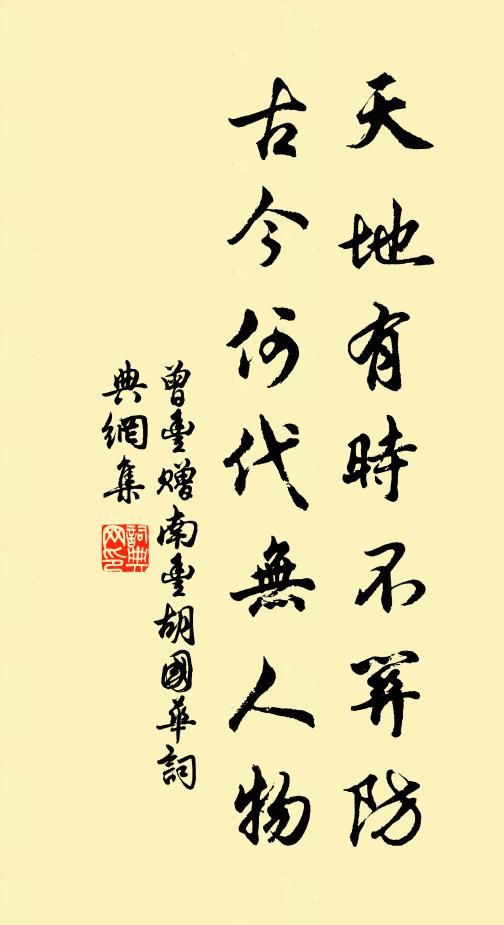 天地有時不關防
古今何代無人物
曾豐贈南豐胡國華詞
典網集
詞典
网印